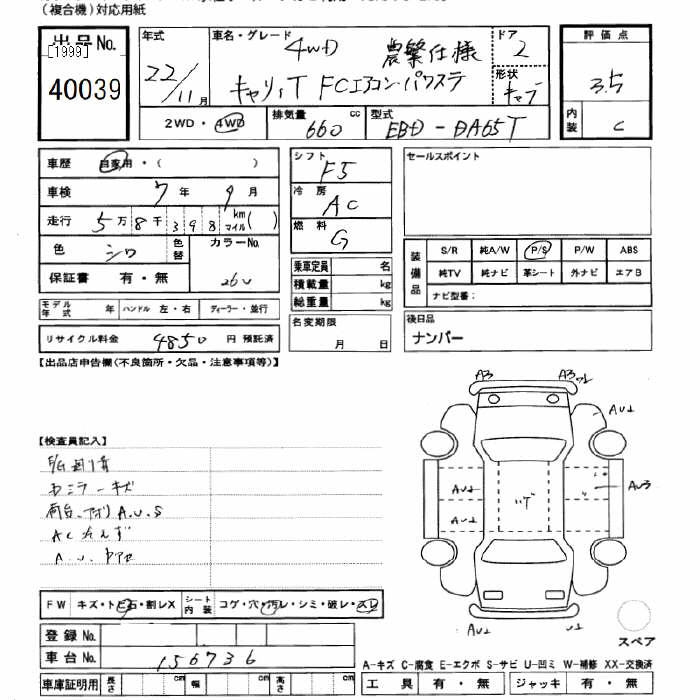 (複合機)対応用紙
出品No.
[1999]
40039
年式
22/11月
車名・グレード
4WD 農繁仕様
キャリィT FCエアコン・パワステ
ドア
2
形状
キャブ
評価点
3.5
内装
C
2WD・4WD
排気量 cc
660
型式
EBD-DA65T
車歴 自家用・( )
車検 7年 9月
走行 5万8千398 km マイル( )
色 シロ
色替
カラーNo.
26U
保証書 有・無
モデル年式 年 ハンドル 左・右 ディーラー・並行
リサイクル料金 4850 円 預託済
シフト
F5
冷房
AC
燃料
G
乗車定員 名
積載量 kg
総重量 kg
名変期限
月 日
セールスポイント
装備品
S/R 純A/W P/S P/W ABS
純TV 純ナビ 革シート 外ナビ エアB
ナビ型番:
後日品
ナンバー
【出品店申告欄(不良箇所・欠品・注意事項等)】
【検査員記入】
ルミラーキズ
荷台、アオリ A.U.S
A.U.
FW キズ・トビ石・割レX シート内装 コゲ・穴・汚レ・シミ・破レ・スレ
登録No.
車台No. 156736
車庫証明用 長さ cm 幅 cm 高さ cm
A3
AU2
AU2
AU3
AU2
AU2
スペア
A-キズ C-腐食 E-エクボ S-サビ U-凹ミ W-補修 XX-交換済
工具 有・無 ジャッキ 有・無